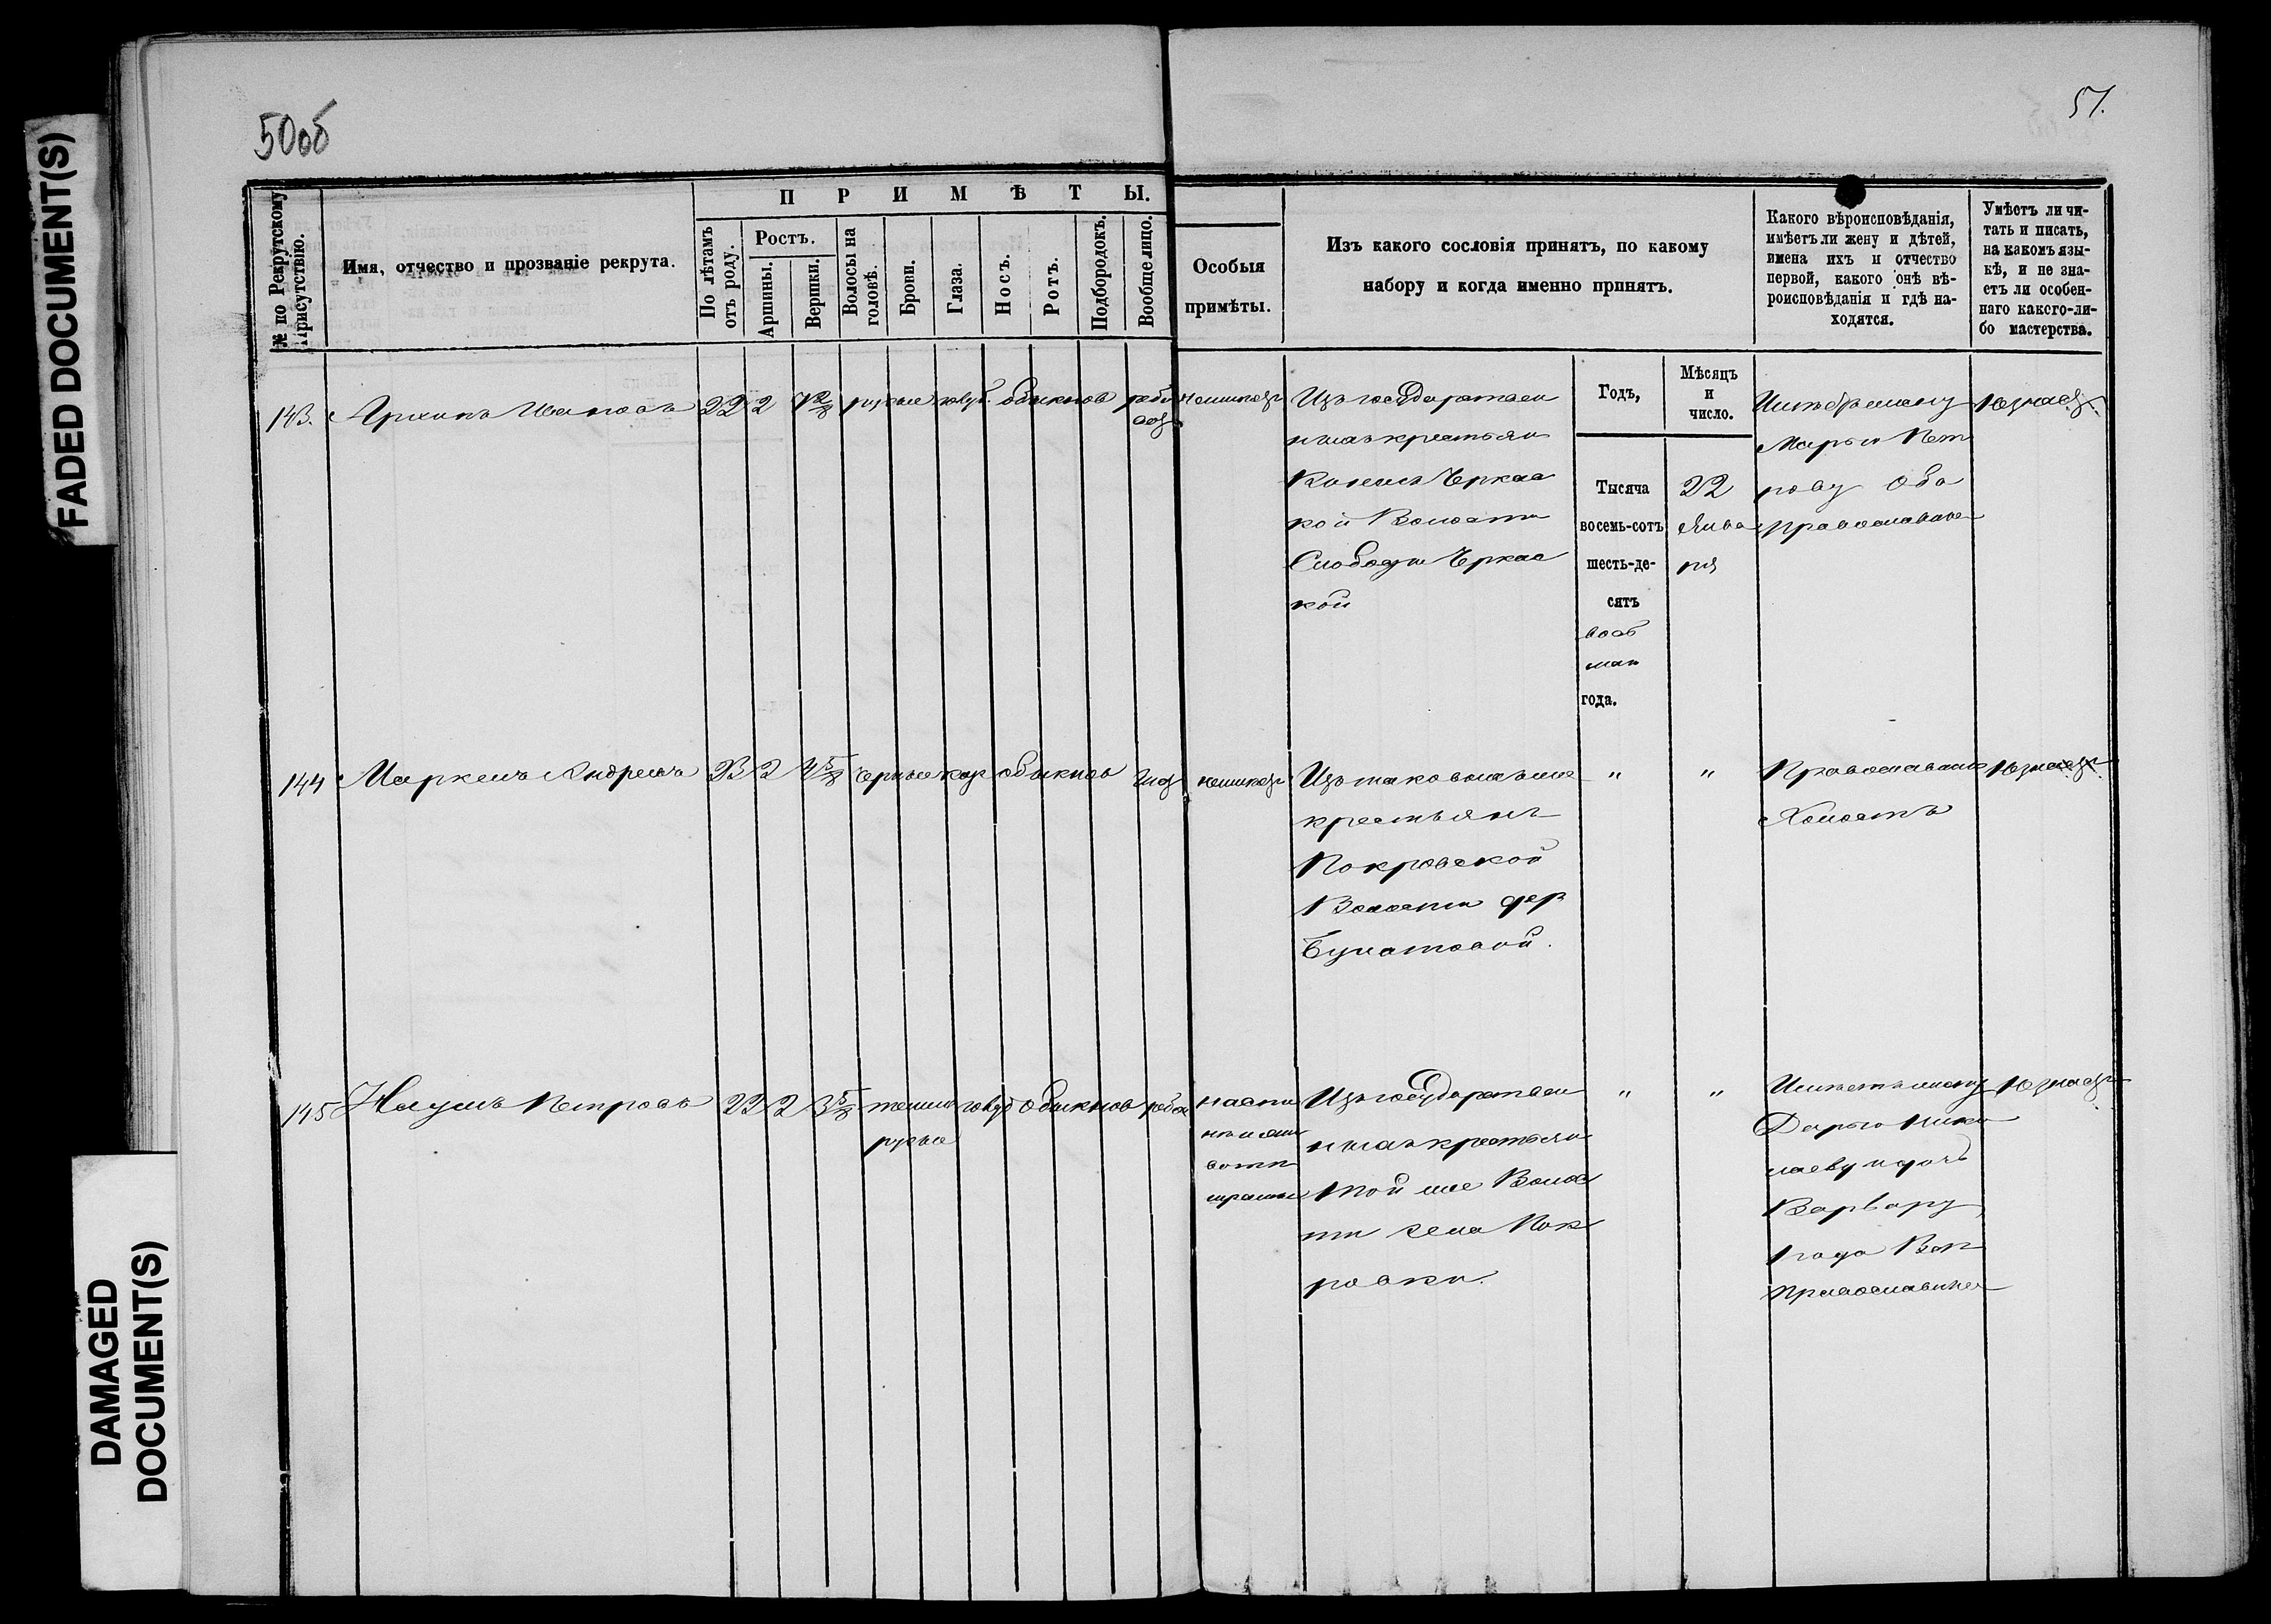 FADED DOCUMENT(S)
DAMAGED
DOCUMENT(S)
50об
51.
№ по Рекрутскому
Присутствію.
Имя, отчество и прозваніе рекрута.
ПРИМѢТЫ.
По лѣтамъ
отъ роду.
Ростъ.
Аршины.
Вершки.
Волосы на
головѣ.
Брови.
Глаза.
Носъ.
Ротъ.
Подбородокъ.
Вообще лицо.
Особыя
примѣты.
Изъ какого сословія принятъ, по какому
набору и когда именно принятъ.
Какого вѣроисповѣданія,
имѣетъ ли жену и дѣтей,
имена ихъ и отчество
первой, какого онѣ вѣ-
роисповѣданія и гдѣ на-
ходятся.
Умѣетъ ли чи-
тать и писать,
на какомъ язы-
кѣ, и не зна-
етъ ли особен-
наго какого-ли-
бо мастерства.
Годъ,
Мѣсяцъ
и
число.
143. Архипъ Ивановъ 22 2 4 2/8 русые голуб. обыкнов
Изъ государствен
ныхъ крестьян
Черкас
кой Волости
Слободы Черкас
кой
Тысяча
восемь-сотъ
шесть-де-
сятъ
вось
маго
года.
22
Янва
ря
жену
Марью Пет
рову Оба
православные
144 Маркелъ Андреевъ 23 2 4 5/8 черные кар обыкнов
Изъ таковыхъ же
крестьянъ
Покровской
Волости дер
Булатовой.
" "
Православный
Холостъ
145 Наумъ Петровъ 22 2 3 5/8 темно голуб обыкнов
русые
Изъ государствен
ныхъ крестьян
Той же Волос
ти села Пок
ровки.
" "
Имѣетъ жену
Дарью Нико
лаеву и дочь
Варвару
1 года Вѣр
Православныя